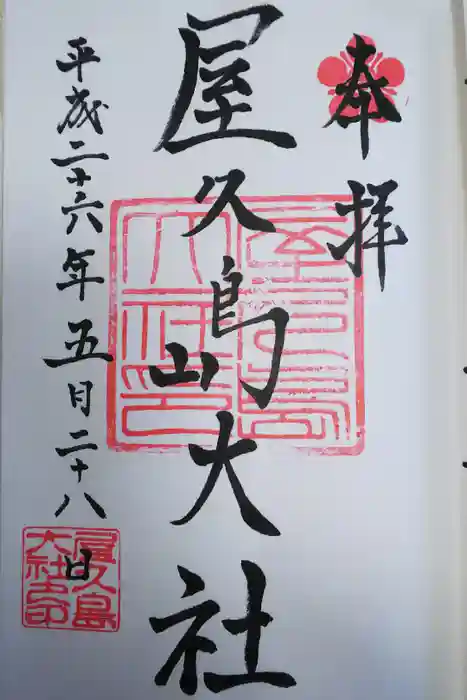 奉拝
屋久島大社
平成二十六年五月二十八日
屋久島
大社之印